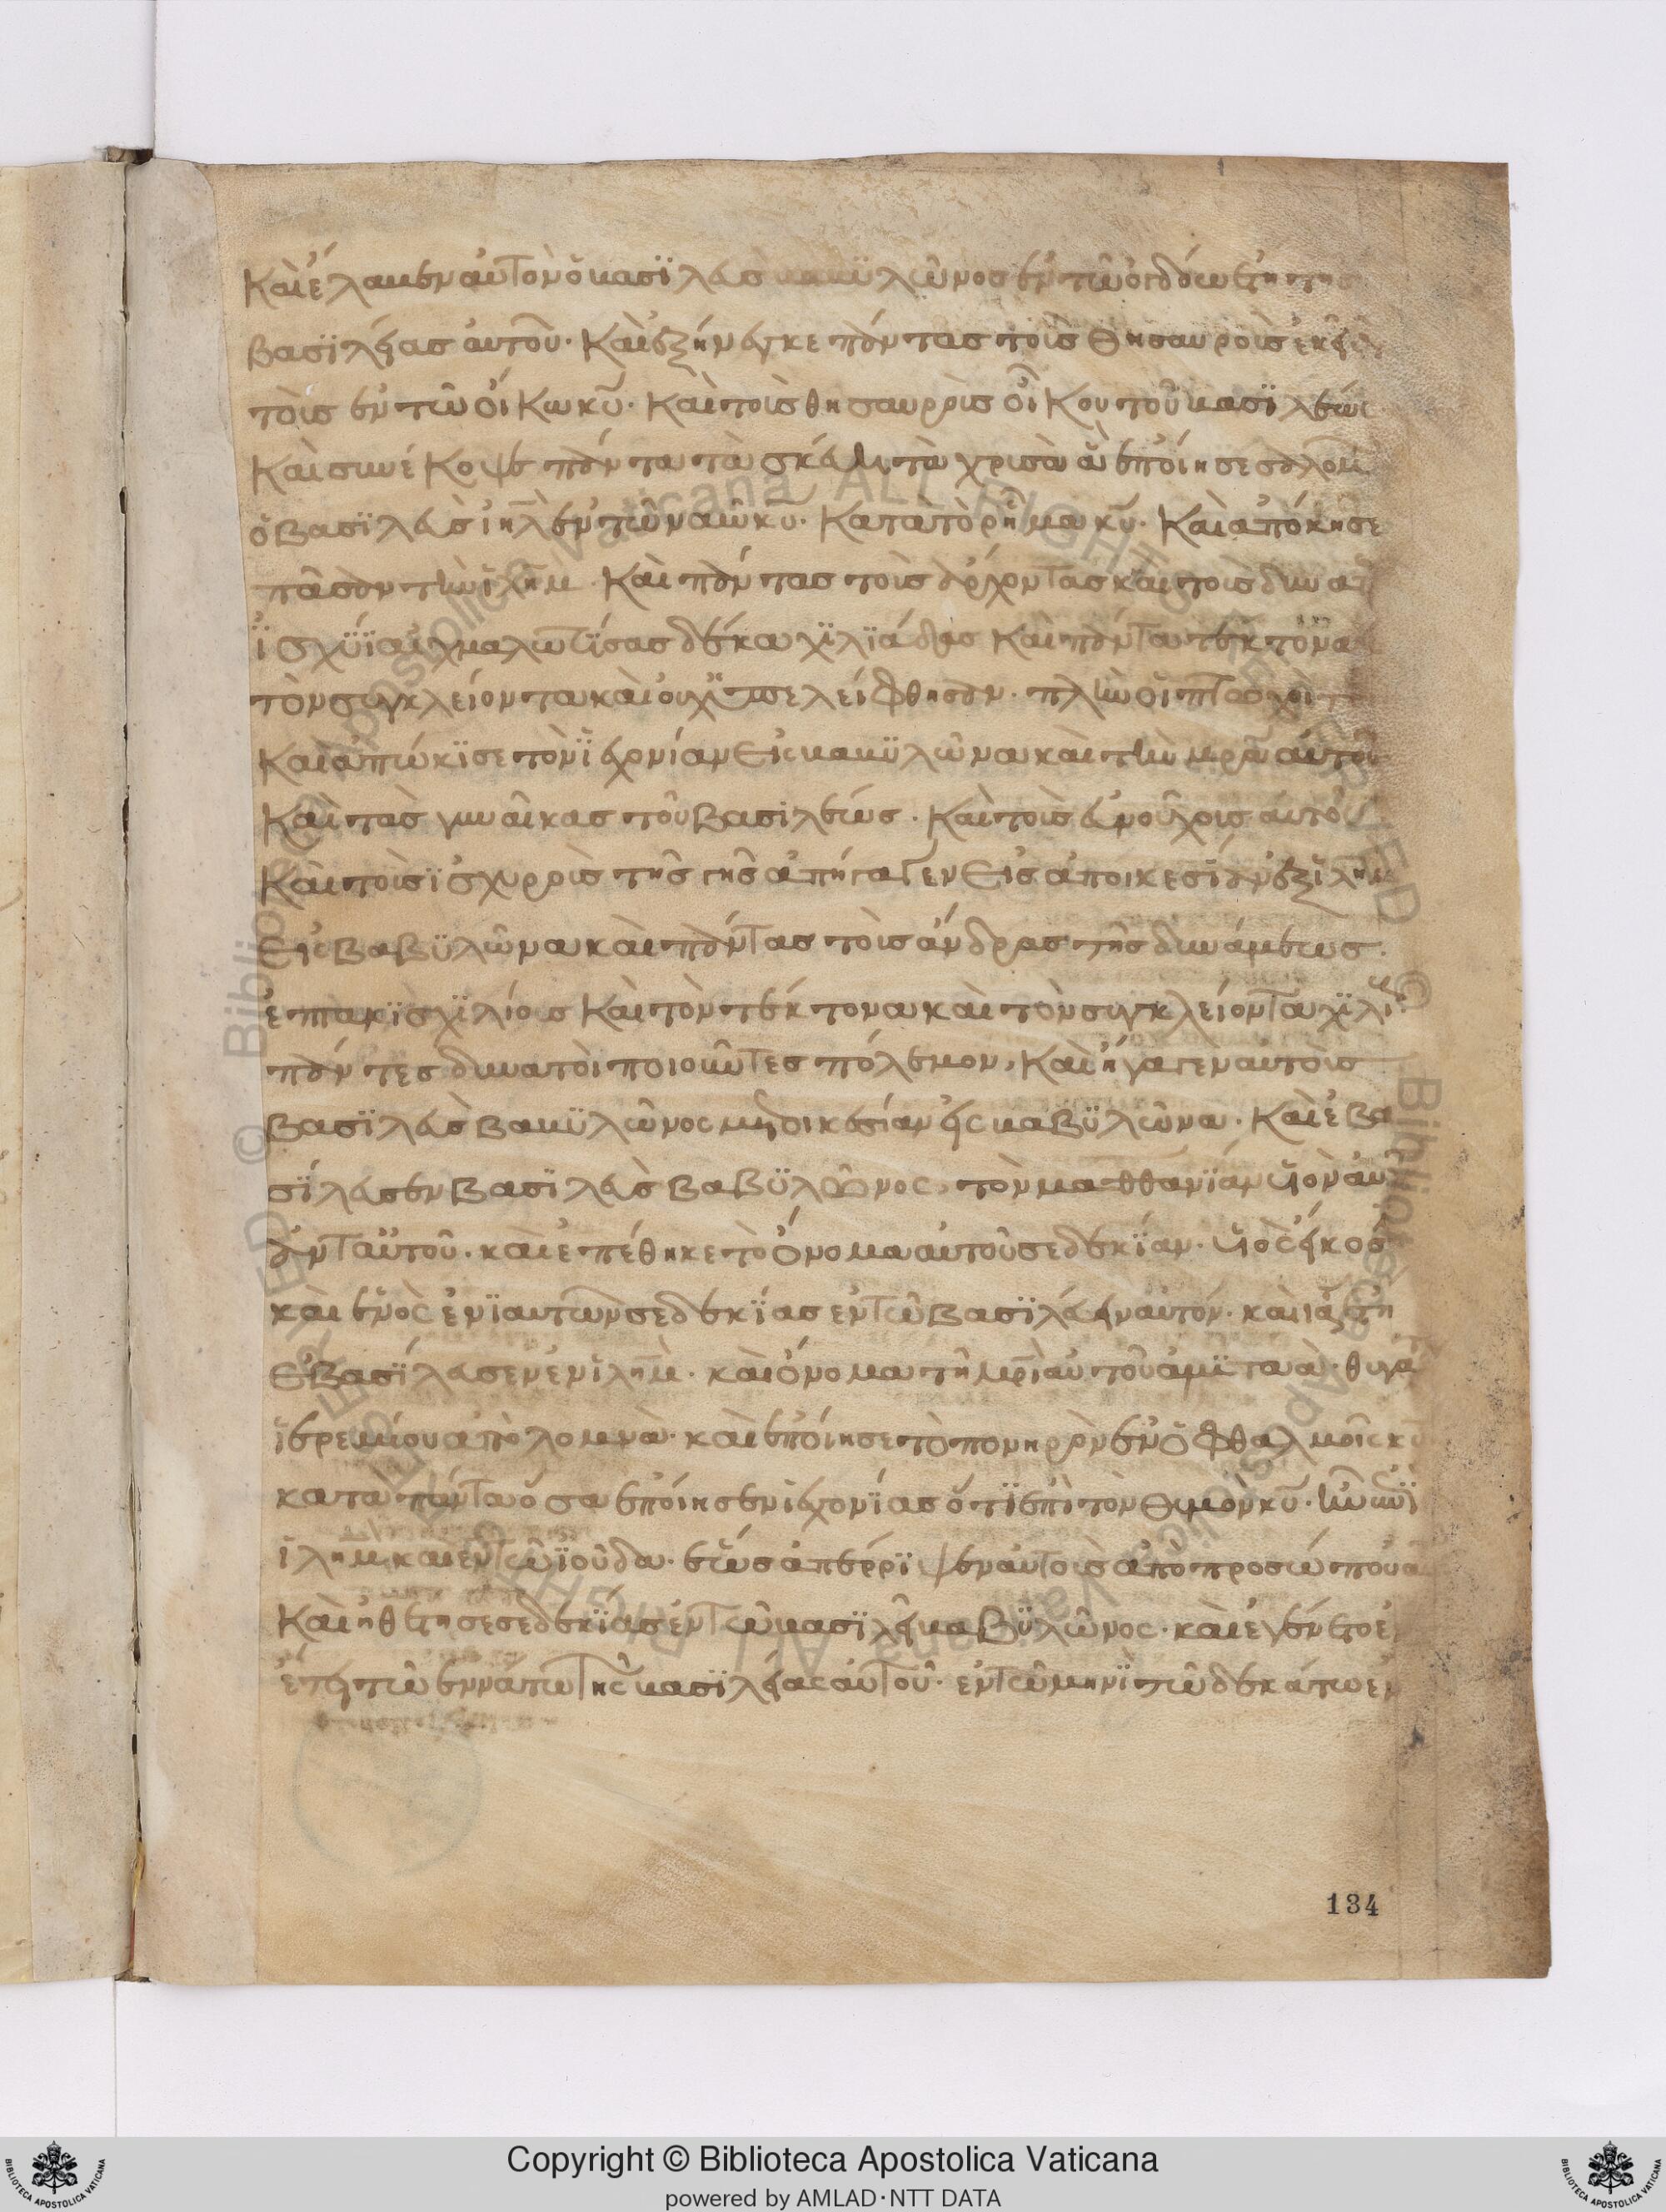 Καὶ ἔλαμεν αὐτὸν ὁ βασϊλεὺς βαβϋλῶνος ἐν τῶ ὀγδόω ἔτη τῆς
βασϊλείας αὐτοῦ. Καὶ ἐξήνεγκε πάντας τοὶς θησαυροὶς ἐκεῖθεν
τοὶς ἐν τῶ οἴκω κυ̅. Καὶ τοὶς θησαυροὶς οἴκου τοῦ βασϊλέως
Καὶ σινέκοψε πάντα τὰ σκεύη τὰ χρισὰ ἃ ἐποίησε σαλομ
ὁ βασϊλεὺς ιη̅λ ἐν τῶ ναῶ κυ̅. Κατὰ τὸ ρῆμα κυ̅. Καὶ ἀπόκησε
πᾶσαν τὴν ϊλη̅μ. Καὶ πάντας τοὶς ἄρχοντας καὶ τοὶς δυνατ
ϊσχϋϊ αἰχμαλωτίσας δέκα χϊλϊάδας Καὶ πάντα τέκτονα
τὸν συγκλείοντα καὶ οὐχ ὑπελείφθησαν. πλὴν οἱ πτωχοὶ τ
Καὶ ἀπώκϊσε τὸν ϊεχονίαν εἰς βαβϋλῶνα καὶ τὴν μρ̅α αὐτοῦ
Καὶ τὰς γυναῖκας τοῦ βασιλέως. Καὶ τοὶς εὐνούχοις αὐτοῦ
Καὶ τοὶς ϊσχυροὶς τῆς γῆς ἀπήγαγεν εἰς ἀποικεσίαν ἐξ ϊλη̅μ
εἰς βαβϋλῶνα καὶ πάντας τοὶς ἄνδρας τῆς δυνάμεως.
ἑπτακϊσχϊλίοις Καὶ τὸν τέκτονα καὶ τὸν συγκλείοντα χϊλί
πάντες δυνατοὶ ποιοῦντες πόλεμον, Καὶ ἤγαγεν αυτοὶς
βασϊλεὺς βαβϋλῶνος μετοικεσίαν εἰς βαβϋλῶνα. Καὶ ἐβα
σϊλευσεν βασϊλεὺς βαβϋλῶνος, τὸν μαθθανϊαν υἱὸν αὐ
ἀντ αὐτοῦ. καὶ ἐπέθηκε τὸ ὄνομα αὐτοῦ σεδεκϊαν. υἱὸς εἴκοσ
καὶ ἑνὸς ἐνϊαυτῶν σεδεκϊας ἐν τῶ βασϊλεύειν αὐτόν. καὶ ια ἔτη
ἐβασϊλευσεν ἐν ϊλη̅μ. καὶ ὄνομα τῆ μρ̅ὶ αὐτοῦ ἀμϊταὰ. θυγά
ϊερεμίου ἀπὸ λομνὰ. καὶ ἐποίησε τὸ πονηρὸν ἐν ὀφθαλμοῖς κυ̅
κατὰ πάντα ὅσα ἐποίησεν ϊεχονϊας ὅτϊ ἐπὶ τὸν θυμὸν κυ̅. ἦν ἐπὶ
ϊλη̅μ καὶ ἐν τῶ ϊούδα. ἕως ἀπέρρϊψεν αὐτοὶς ἀπὸ προσώπου α
Καὶ ἠθέτησε σεδεκϊας ἐν τῶ βασϊλεῖ βαβϋλῶνος. καὶ ἐγένετο ἐ
ἔτει τῶ ἐννάτω τῆς βασϊλείας αὐτοῦ. ἐν τῶ μηνϊ τῶ δεκάτω ἐν
134
Copyright © Biblioteca Apostolica Vaticana
powered by AMLAD·NTT DATA